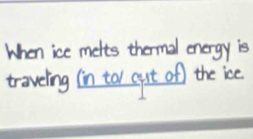 When ice melts thermal energy is
traveling (in to/ out of) the ice.